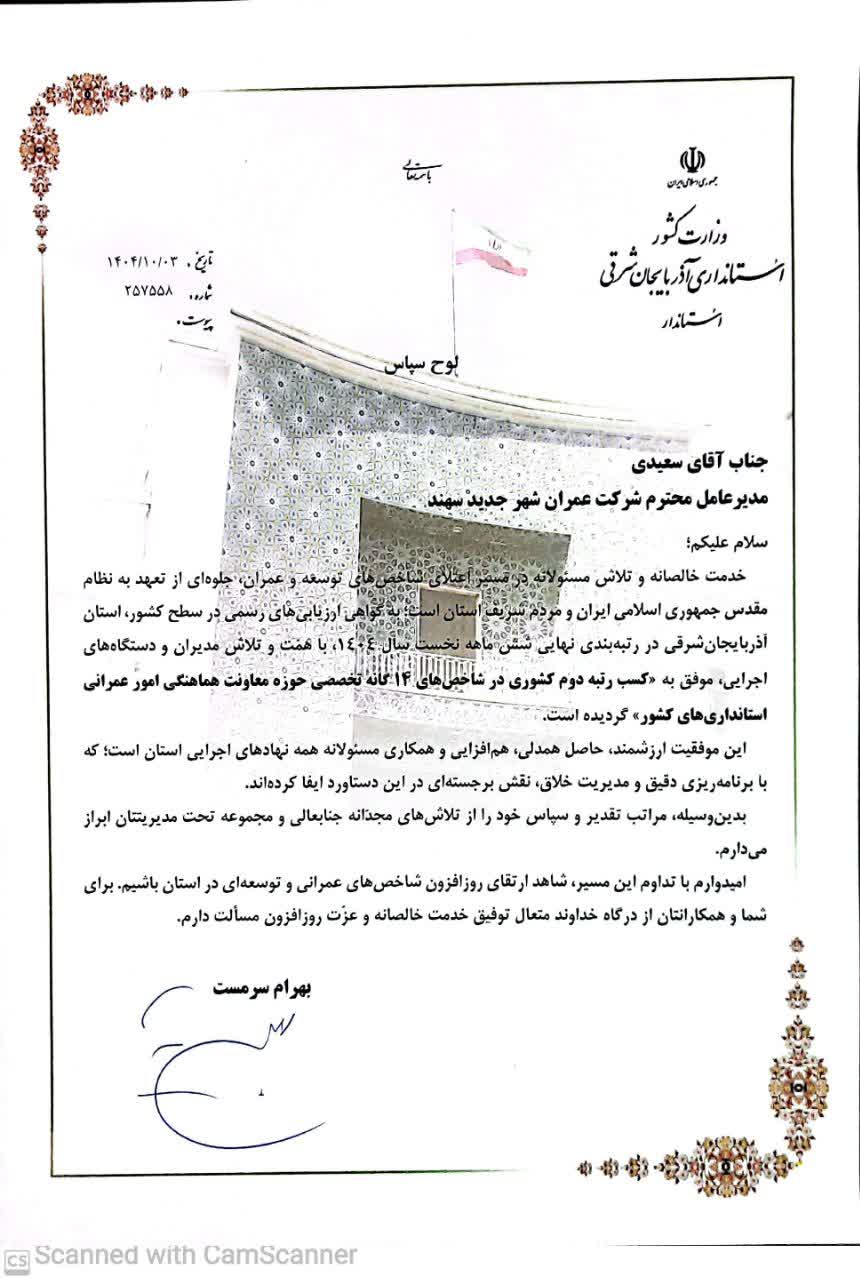 باسمه‌تعالی
جمهوری اسلامی ایران
وزارت کشور
استانداری آذربایجان‌شرقی
استاندار
تاریخ: ۱۴۰۴/۱۰/۰۳
شماره: ۲۵۷۵۵۸
پیوست:
لوح سپاس
جناب آقای سعیدی
مدیرعامل محترم شرکت عمران شهر جدید سهند
سلام علیکم؛
خدمت خالصانه و تلاش مسئولانه در مسیر اعتلای شاخص‌های توسعه و عمران، جلوه‌ای از تعهد به نظام
مقدس جمهوری اسلامی ایران و مردم شریف استان است؛ به گواهی ارزیابی‌های رسمی در سطح کشور، استان
آذربایجان‌شرقی در رتبه‌بندی نهایی شش ماهه نخست سال ۱۴۰۴، با همّت و تلاش مدیران و دستگاه‌های
اجرایی، موفق به «کسب رتبه دوم کشوری در شاخص‌های ۱۴ گانه تخصصی حوزه معاونت هماهنگی امور عمرانی
استانداری‌های کشور» گردیده است.
این موفقیت ارزشمند، حاصل همدلی، هم‌افزایی و همکاری مسئولانه همه نهادهای اجرایی استان است؛ که
با برنامه‌ریزی دقیق و مدیریت خلاق، نقش برجسته‌ای در این دستاورد ایفا کرده‌اند.
بدین‌وسیله، مراتب تقدیر و سپاس خود را از تلاش‌های مجدّانه جنابعالی و مجموعه تحت مدیریتتان ابراز
می‌دارم.
امیدوارم با تداوم این مسیر، شاهد ارتقای روزافزون شاخص‌های عمرانی و توسعه‌ای در استان باشیم. برای
شما و همکارانتان از درگاه خداوند متعال توفیق خدمت خالصانه و عزّت روزافزون مسألت دارم.
بهرام سرمست
CS Scanned with CamScanner